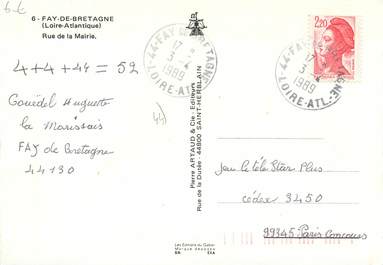 6 - FAY-DE-BRETAGNE
(Loire-Atlantique)
Rue de la Mairie.
4+4+44 = 52
Gouëdel Huguette
la Marissais
FAY de Bretagne
44130
44)
Pierre ARTAUD & Cie - Editeurs
Rue de la Dutée - 44800 SAINT-HERBLAIN
44-FAY DE BRETAGNE
17
3 - 4
1989
LOIRE-ATL.
2,20
44-FAY BRETAGNE
17
3 - 4
1989
LOIRE-ATL.
Jeu le télé Star Plus
cédex 3450
99345 Paris Concours
Les Editions du Gabier
Marque déposée